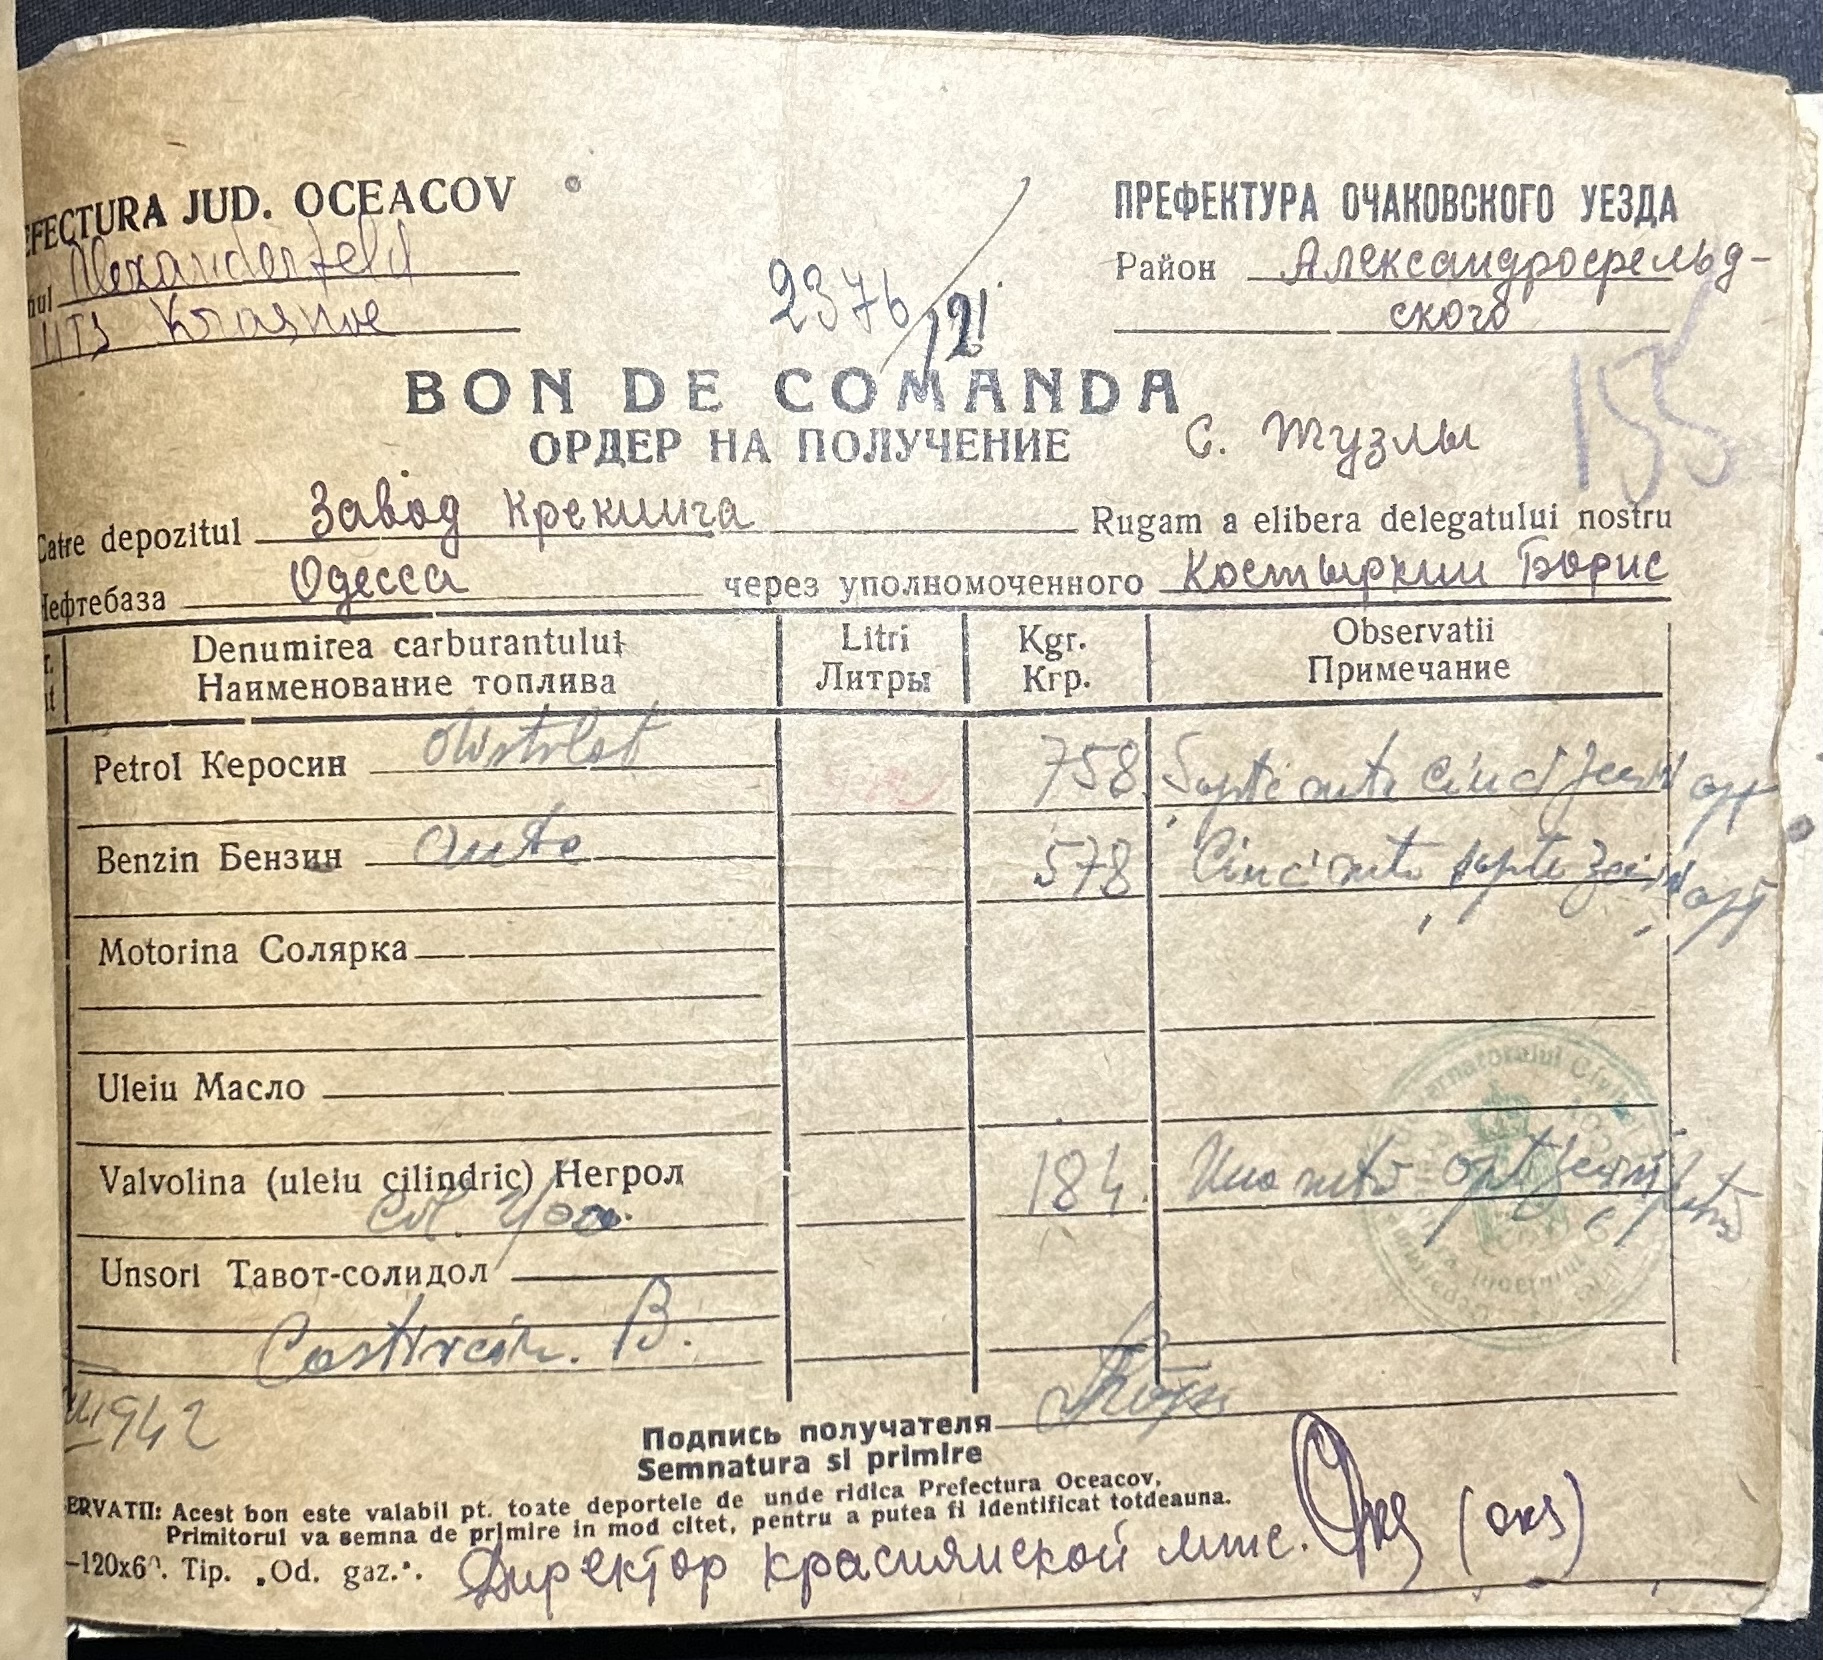 EFECTURA JUD. OCEACOV
ПРЕФЕКТУРА ОЧАКОВСКОГО УЕЗДА
nul Alexanderfeld
Район Александрофельд-
ского
MTS Krasnoe
2376/121
155
BON DE COMANDA
ОРДЕР НА ПОЛУЧЕНИЕ
с. Тузлы
Catre depozitul Завод Крекинга Rugam a elibera delegatului nostru
Нефтебаза Одесса через уполномоченного Костыркин Борис
Denumirea carburantului Litri Kgr. Observatii
Наименование топлива Литры Кгр. Примечание
Petrol Керосин 758 Sapte sute cinci zeci si opt
Benzin Бензин auto 578 Cinci sute sapte zeci si opt
Motorina Солярка
Uleiu Масло
Valvolina (uleiu cilindric) Негрол 184. Una suta opt zeci si patru
Unsori Тавот-солидол
B.
1942
Подпись получателя
Semnatura si primire
ERVATII: Acest bon este valabil pt. toate deportele de unde ridica Prefectura Oceacov.
Primitorul va semna de primire in mod citet, pentru a putea fi identificat totdeauna.
—120x60. Tip. „Od. gaz.“.
Директор Краснянской мтс.